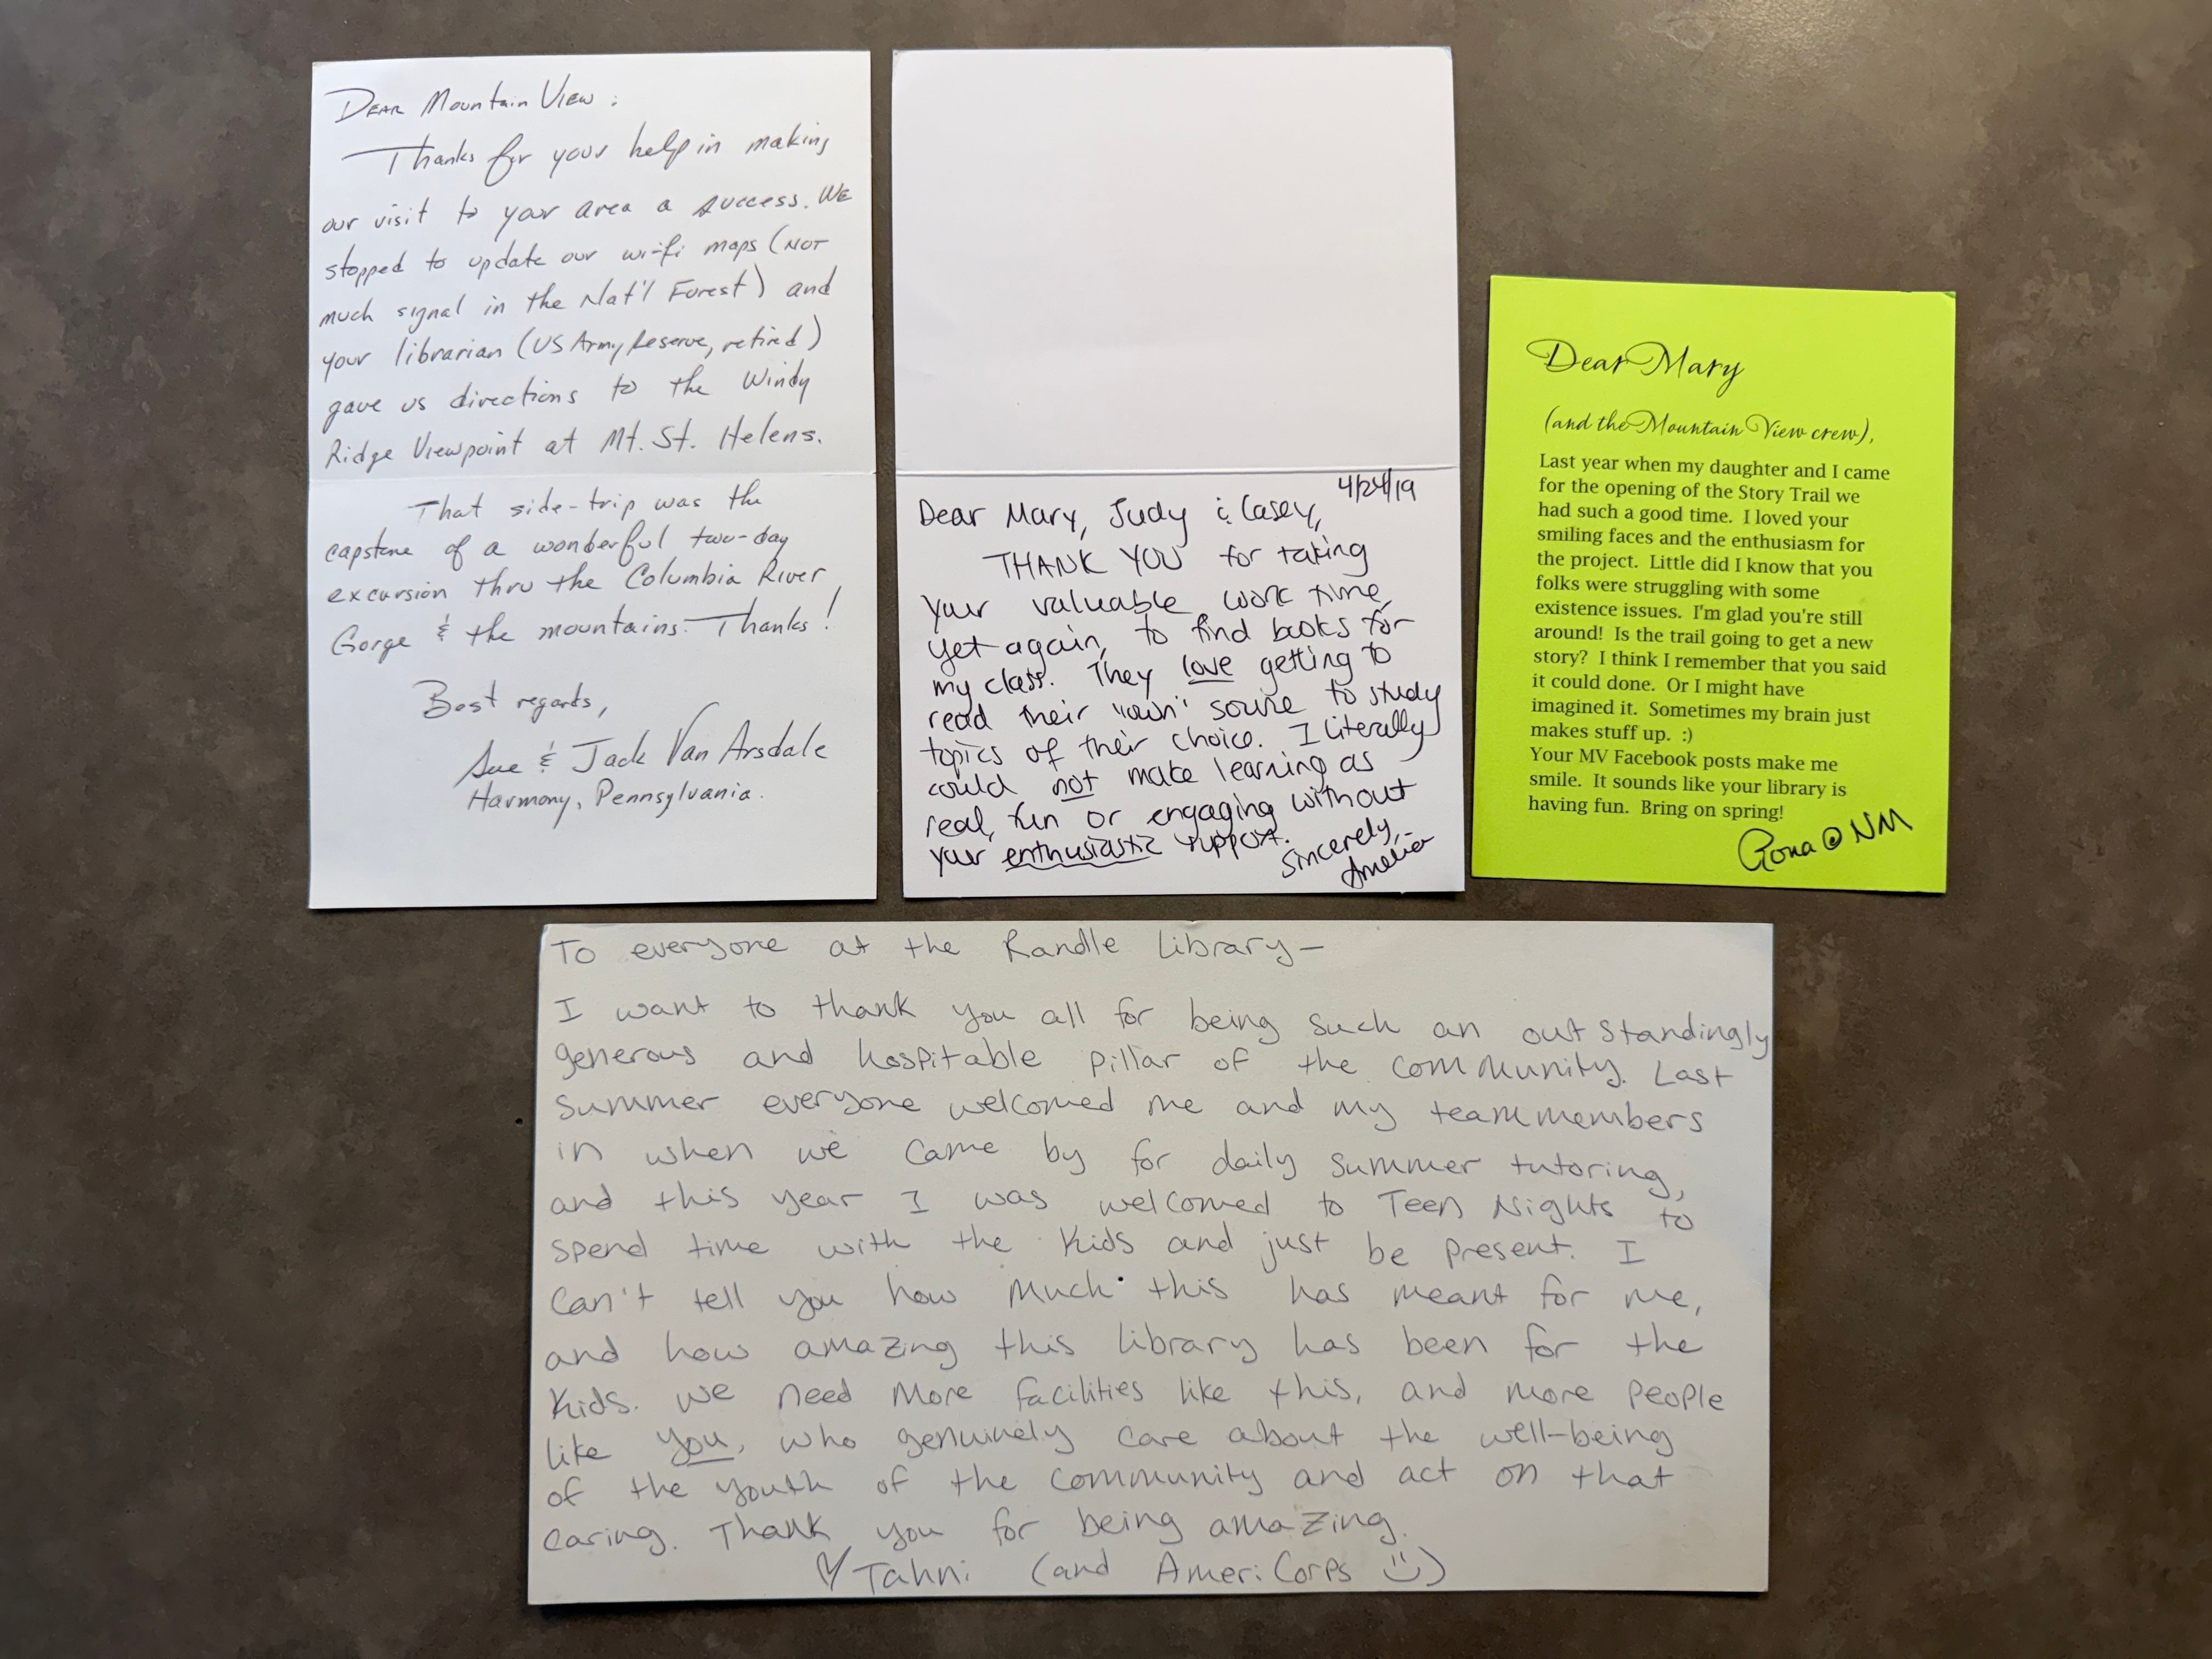 DEAR Mountain View:
Thanks for your help in making
our visit to your area a success. WE
stopped to update our wi-fi maps (NOT
much signal in the Nat'l Forest) and
your librarian (US Army Reserve, retired)
gave us directions to the Windy
Ridge Viewpoint at Mt. St. Helens.
That side-trip was the
capstone of a wonderful two-day
excursion thru the Columbia River
Gorge & the mountains. Thanks!
Best regards,
Sue & Jack Van Arsdale
Harmony, Pennsylvania.
4/24/19
Dear Mary, Judy & Casey,
THANK YOU for taking
your valuable work time,
yet again, to find books for
my class. They love getting to
read their "own" source to study
topics of their choice. I literally
could not make learning as
real, fun or engaging without
your enthusiastic support.
Sincerely,
Amelia
Dear Mary
(and the Mountain View crew),
Last year when my daughter and I came
for the opening of the Story Trail we
had such a good time. I loved your
smiling faces and the enthusiasm for
the project. Little did I know that you
folks were struggling with some
existence issues. I'm glad you're still
around! Is the trail going to get a new
story? I think I remember that you said
it could done. Or I might have
imagined it. Sometimes my brain just
makes stuff up. :)
Your MV Facebook posts make me
smile. It sounds like your library is
having fun. Bring on spring!
Rona @ NM
To everyone at the Randle Library—
I want to thank you all for being such an outstandingly
generous and hospitable pillar of the community. Last
summer everyone welcomed me and my teammembers
in when we came by for daily summer tutoring,
and this year I was welcomed to Teen Nights to
spend time with the kids and just be present. I
can't tell you how much this has meant for me,
and how amazing this library has been for the
kids. We need more facilities like this, and more people
like you, who genuinely care about the well-being
of the youth of the community and act on that
caring. Thank you for being amazing.
♡ Tahni (and AmeriCorps :))